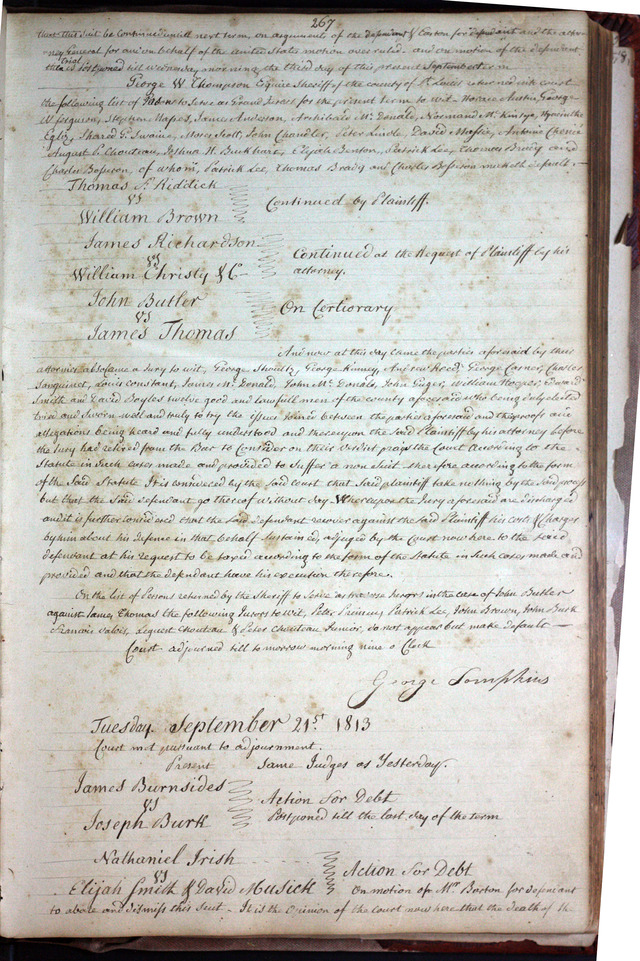 267
that this suit be continued until next term on argument of the defendant & Easton for defendant and the attor-
ney General for and on behalf of the United States motion over ruled. and on motion of the defendant
trial
postponed till Wednesday morning the third day of this present September term
George W Thompson Esquire Sheriff of the county of St Louis returned into court
the following list of persons to serve as Grand Jurors for the present term to wit. Horace Austin, George
W Ferguson, Stephen James Anderson, Archibald Mc Donald, Normand McKinsye, Hyacinthe
Eglis, Shared G. Swaine, Moses Scott, John Chandler, Peter Lindle, David Antoine Chenie
August P. Chouteau, Joshua H. Burkhart, Elijah Benton, Patrick Lee, Thomas Brady and
Charles Bosseron, of whom, Patrick Lee, Thomas Brady and Charles Bosseron maketh default.
Thomas F. Riddick
vs
William Brown
Continued by Plaintiff.
James Richardson
vs
William Christy & Co
Continued at the Request of Plaintiff by his
attorney.
John Butler
vs
James Thomas
On Certiorary
And now at this day came the parties aforesaid by their
attornies also came a Jury to wit, George George Kinney, Andrew Reed, George Carner, Charles
Sanguinet, Louis Constant, James Mc Donald, John Mc Donald, John Geiger, William Hooper, Edward
Smith and David Bayles twelve good and lawfull men of the county aforesaid who being duly elected
tried and sworn well and truly to try the issues joined between the parties aforesaid and the proofs and
allegations being heard and fully understood and thereupon the said Plaintiff by his attorney before
the Jury had retired from the Bar to Consider on their Verdict prays the Court According to the
Statute in such cases made and provided to suffer a non suit. therefore according to the form
of the said Statute It is considered by the said court that said plaintiff take nothing by the said process
but that the said defendant go thereof without day. Whereupon the Jury aforesaid are discharged
and it is further considered that the said defendant recover against the said Plaintiff his costs & Charges
by him about his defence in that behalf sustained, adjuged by the Court now here to the said
defendant at his request to be taxed according to the form of the Statute in such cases made and
provided and that the defendant have his execution therefore.
On the list of Persons returned by the Sheriff to serve as traverse Jurors in the case of John Butler
against James Thomas the following Jurors to wit, Peter Patrick Lee, John Brown, John Burk
Francois Valois, August Chouteau & Peter Chouteau Junior, do not appear but make default
Court adjourned till to morrow morning nine o Clock
George Tompkins
Tuesday. September 21st 1813
Court met pursuant to adjournment.
Present Same Judges as Yesterday.
James Burnsides
vs
Joseph Burk
Action for Debt
Postponed till the last day of the term
Nathaniel Irish
vs
Elijah Smith & David Musick
Action for Debt
On motion of Mr. Barton for defendant
to abate and dismiss this suit - It is the opinion of the court now here that the death of the